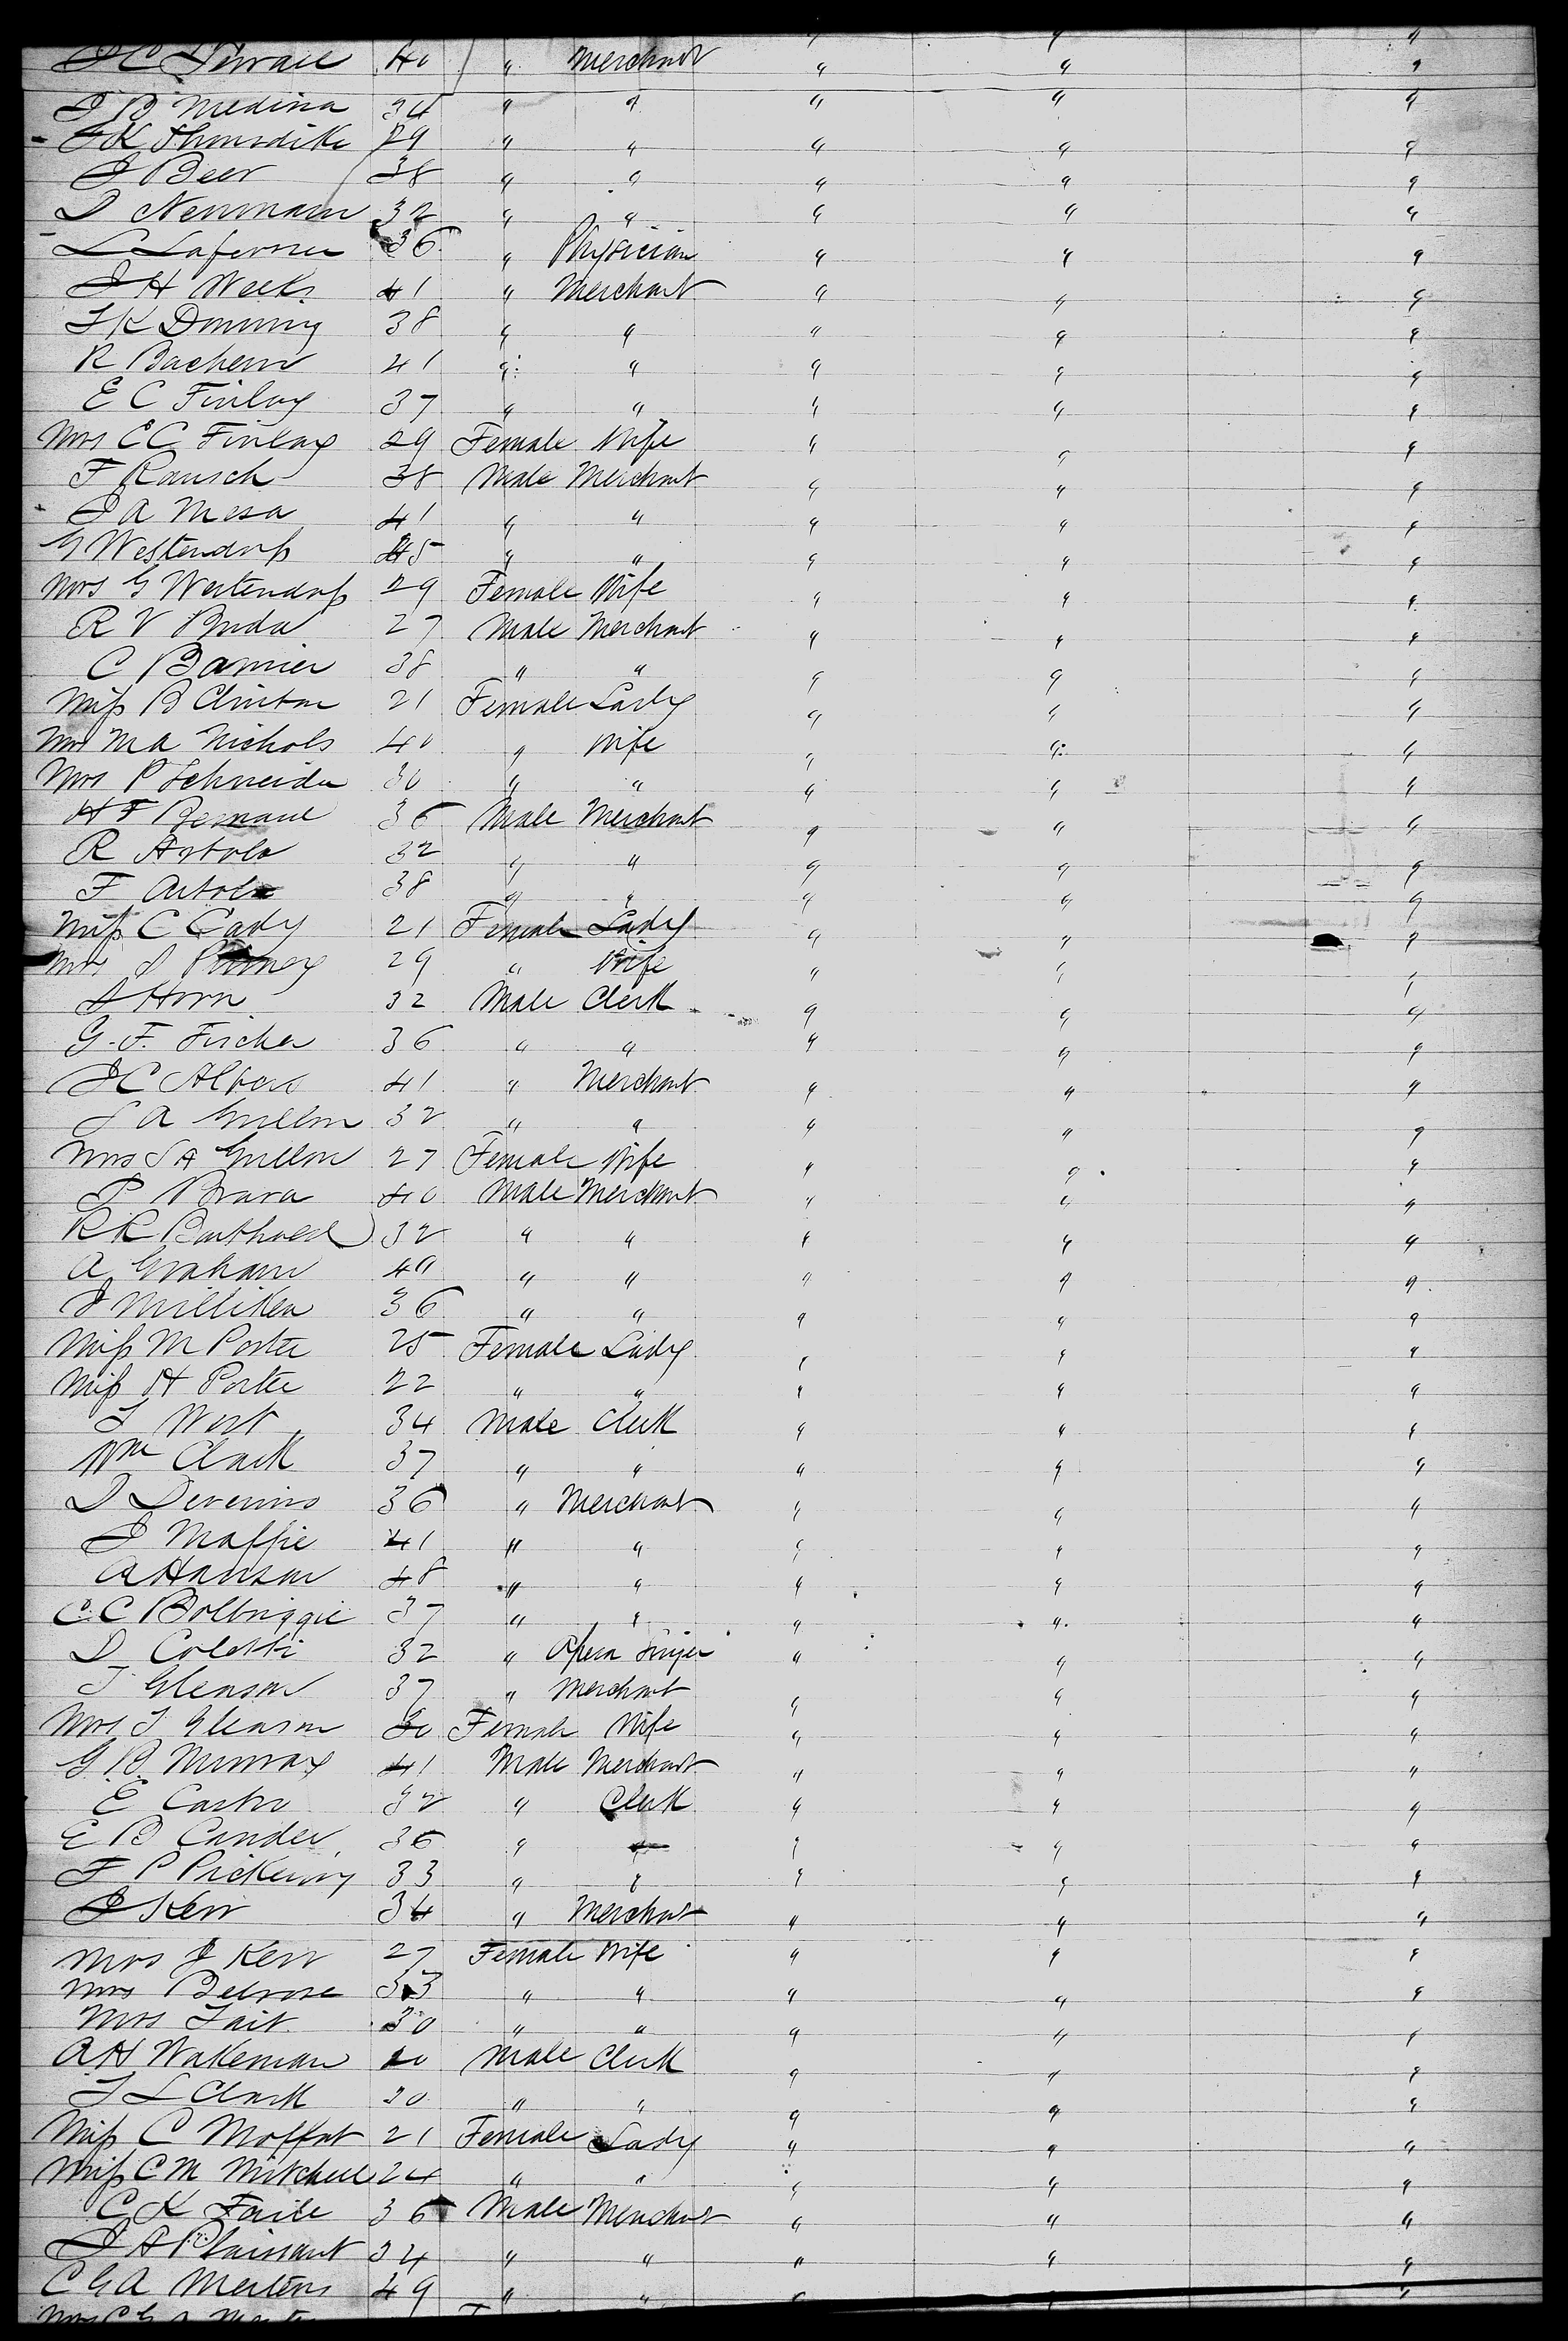 J C Terrail 40 " Merchant " " "
J B Medina 34 " " " " "
J K Thorndike 29 " " " " "
J Beer 38 " " " " "
D Newmann 32 " " " " "
L 36 " Physician " " "
J H Weeks 41 " Merchant " " "
J K 38 " " " " "
R Bachem 41 " " " " "
E C Finlay 37 " " " " "
Mrs E C Finlay 29 Female Wife " " "
F Rausch 38 Male Merchant " " "
J A Mesa 41 " " " " "
G Westendorp 45 " " " " "
Mrs G Westendorp 29 Female Wife " " "
R V 27 Male Merchant " " "
C Barnier 38 " " " " "
Miss B Clinton 21 Female Lady " " "
Mrs M A Nichols 40 " Wife " " "
Mrs P Schneider 30 " " " " "
H F 36 Male Merchant " " "
R Artola 32 " " " " "
F Artola 38 " " " " "
Miss C Cady 21 Female Lady " " "
Mrs J 29 " Wife " " "
J Horn 32 Male Clerk " " "
G. F. Fischer 36 " " " " "
J C Albers 41 " Merchant " " "
S A Guillon 32 " " " " "
Mrs S A Guillon 27 Female Wife " " "
P Brava 40 Male Merchant " " "
R R Barthold 32 " " " " "
A Graham 40 " " " " "
J Milliken 36 " " " " "
Miss M Porter 25 Female Lady " " "
Miss H Porter 22 " " " " "
J West 34 Male Clerk " " "
Wm Clark 37 " " " " "
D 36 " Merchant " " "
J Maffie 41 " " " " "
A Hanson 48 " " " " "
C. C 37 " " " " "
D Coletti 32 " Opera Singer " " "
T Gleason 37 " Merchant " " "
Mrs T Gleason 30 Female Wife " " "
G. B. Murray 41 Male Merchant " " "
E Castro 32 " Clerk " " "
E B Candee 36 " " " " "
F P Pickering 33 " " " " "
J Kerr 34 " Merchant " " "
Mrs J Kerr 27 Female Wife " " "
Mrs Belrose 33 " " " " "
Mrs Tait 30 " " " " "
A H Wakeman 20 Male Clerk " " "
T L Clark 20 " " " " "
Miss C Moffat 21 Female Lady " " "
Miss C M Mitchell 24 " " " " "
C K Faile 36 Male Merchant " " "
J A 34 " " " " "
C G A Mertens 49 " " " " "
Mrs C G A